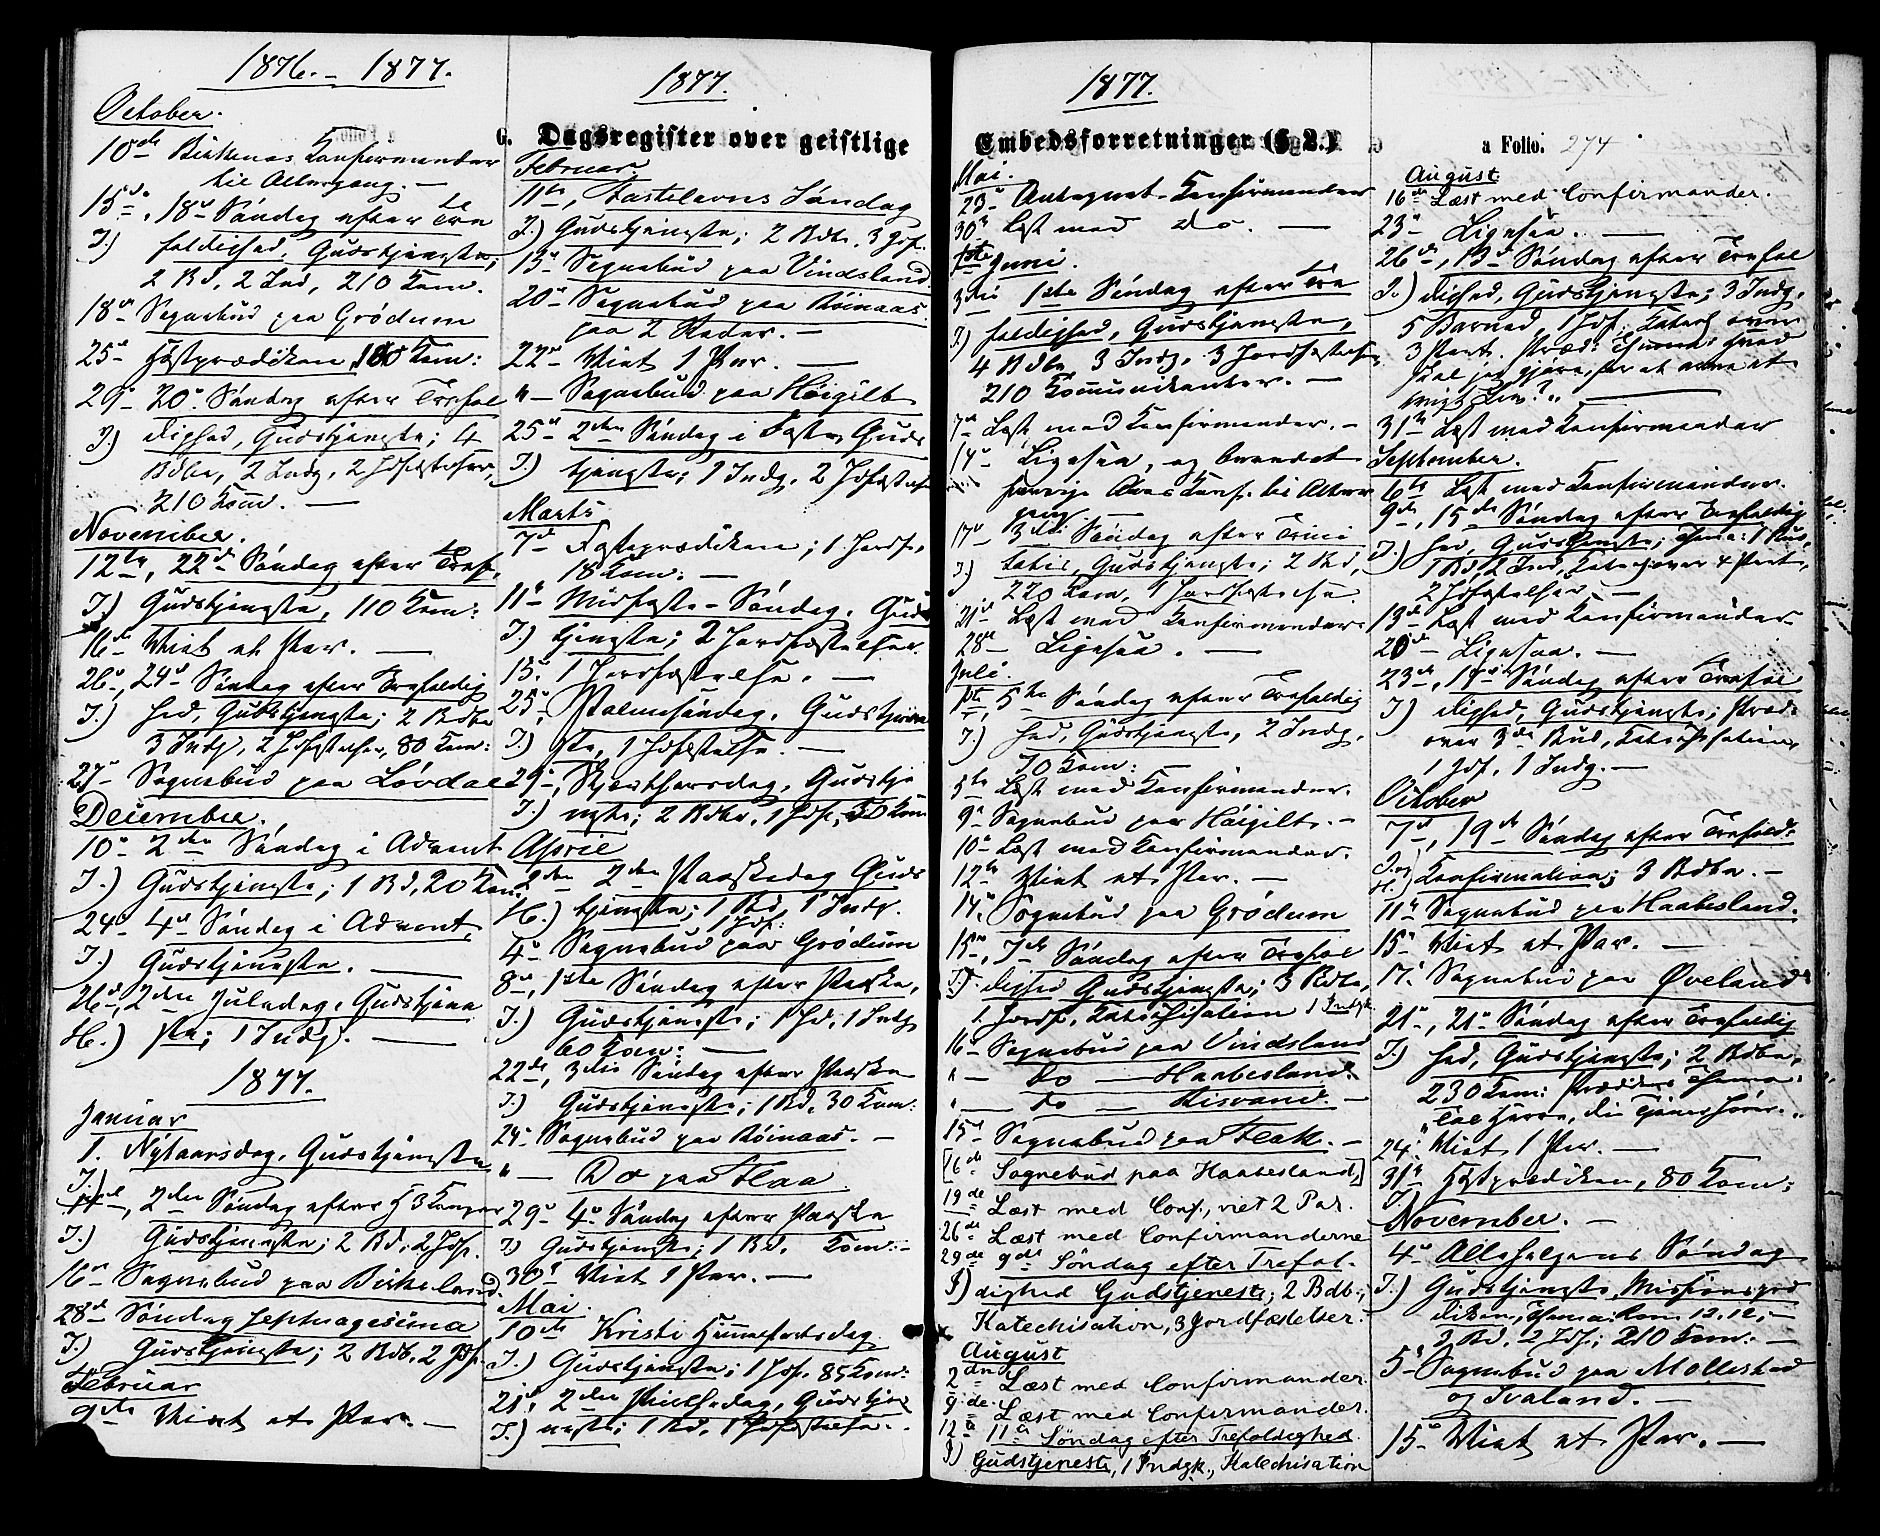 1876. - 1877.
October.
10de Birkenes Konfirmander
til Altergang. —
15de, 18de Søndag efter Tre
I.) foldighed, Gudstjeneste;
2 Bd, 2 Ind, 210 Kom.
18de Sognebud paa Grødum
25de Høstprædiken, 100 Kom:
29de 20de Søndag efter Trefol
I.) dighed, Gudstjeneste; 4
Bdbe, 2 Indg, 2 Jdfæstelser,
210 Kom. —
November.
12te, 22de Søndag efter Tref.
I.) Gudstjeneste, 110 Kom:
16de Viet et Par. —
26de, 24de Søndag efter Trefoldig
I.) hed, Gudstjeneste; 2 Bdbe
3 Indg, 2 Jdfæstelser, 80 Kom:
27de Sognebud paa Løvdal
December.
10de 2den Søndag i Advent
I.) Gudstjeneste; 1 Bd, 20 Kom.
24de 4de Søndag i Advent,
I.) Gudstjeneste. —
26de, 2den Juledag, Gudstjene
H.) ste; 1 Indg. —
1877.
Januar
1. Nytaarsdag, Gudstjeneste
I.)
14de, 2den Søndag efter H 3 Konger
I.) Gudstjeneste; 2 Bd, 2 Jdf.
16de Sognebud paa Birkeland.
28de Søndag Septuagesima
I.) Gudstjeneste; 2 Bdb, 2 Jdf.
Februar
9de Viet et Par. —
1877.
G. Dagsregister over geistlige
Februar.
11te, Fastelavns Søndag
I.) Gudstjeneste; 2 Bdb, 3 Jdf.
13de Sognebud paa Vindsland
20de Sognebud paa Røinaas
paa 2 Steder. —
22de Viet 1 Par. —
" — Sognebud paa Høigilt
25de 2den Søndag i Faste, Guds
I.) tjeneste; 1 Indg, 2 Jdfæstelser
Marts
7de Fasteprædiken; 1 Jordf,
18 Kom. —
11te Midfaste-Søndag, Guds
I.) tjeneste; 2 Jordfæstelser.
13. 1 Jordfæstelse. —
25de, Palmesøndag, Gudstjene
I.) ste, 1 Jdfæstelse. —
29de, Skjærthorsdag, Gudstje
I.) neste; 2 Bdbe, 1 Jdf, 50 Kom
April
2den 2den Paaskedag Guds
H.) tjeneste; 1 Bd, 1 Indg.
1 Jdf:
4de Sognebud paa Grødum
8de, 1ste Søndag efter Paaske,
I.) Gudstjeneste; 1 Jd, 1 Indg
60 Kom: —
22de, 3die Søndag efter Paaske
I.) Gudstjeneste; 1 Bd, 30 Kom:
24de Sognebud paa Røinaas. —
" — Do paa Flaa.
29de 4de Søndag efter Paaske
I.) Gudstjeneste; 1 Bd, Kom: -
30te Viet 1 Par. —
Mai.
10de Kristi Himmelfartsdag
I.) Gudstjeneste; 1 Jdf. 85 Kom:
21de, 2den Pintsedag, Gudstje
I.) neste; 1 Bd, 1 Jdfæstelse. -
1877.
Embedsforretninger (§ 2.)
Mai.
23de Antegnet Konfirmander
30te Læst med do. —
Juni.
3die 1ste Søndag efter Tre
I.) foldighed, Gudstjeneste,
4 Bdbe, 3 Indg, 3 Jordfæstelser,
210 Kommunikanter. —
7de Læst med Konfirmander. -
14de Ligesaa, og
gang. —
17de 3die Søndag efter Trini
I.) tatis, Gudstjeneste; 2 Bd,
220 Kom, 1 Jordfæstelse
21de Læst med Konfirmander
28de Ligesaa. —
Juli.
1ste, 5te Søndag efter Trefoldig
I.) hed, Gudstjeneste, 2 Indg,
70 Kom: —
5te Læst med Konfirmander.
9de Sognebud paa Høigilt. -
10de Læst med Konfirmander.
12te Viet et Par. —
14de Sognebud paa Grødum
15de, 7de Søndag efter Trefol
I.) dighed Gudstjeneste; 3 Bdbe,
1 Jordf, Katechisation 1 Indgk
16de Sognebud paa Vindsland
" — do — Haabesland.
" — do — Risvand. -
15de Sognebud paa Flak. -
[16de Sognebud paa Haabesland,]
19de Læst med Conf., viet 2 Par.
26de Læst med Confirmanderne
29de 9de Søndag efter Trefol-
I) dighed Gudstjeneste; 2 Bdb.,
Katechisation, 3 Jordfæstelser.
August
2dn Læst med Confirmander.
9de Læst med Confirmander.
12te 11te Søndag efter Trefoldighed.
I) Gudstjeneste, 1 Indgk., Katechisation
a Folio. 274
August
16de Læst med Confirmander.
23de Ligesaa. —
26de, 13de Søndag efter Trefol
I.) dighed, Gudstjeneste; 3 Indg,
5 Barned, 1 Jdf: Katech over
3 Part. Præd: Thema: Hvad
skal jeg gjøre, for at
mit Liv?" —
31te Læst med Konfirmander
September.
6te Læst med Konfirmander.
9de, 15de Søndag efter Trefoldig
I.) hed, Gudstjeneste; Thema: 1 Bud,
1 Bd, 2 Ind, Katech over 4 Part,
2 Jdfæstelser. —
13de Læst med Konfirmander
20de Ligesaa. —
23de, 17de Søndag efter Trefol
I.) dighed, Gudstjeneste; Præd.
over 3die Bud, Katechisation,
1 Jdf, 1 Indg. —
October
7de, 19de Søndag efter Trefold.
I. og H.) Konfirmation; 3 Bdbe. —
11te Sognebud paa Haabesland.
15de Viet et Par. —
17. Sognebud paa Øveland
21de, 21de Søndag efter Trefoldig
I.) hed, Gudstjeneste; 2 Bdbe,
230 Kom: Prædiken Thema:
"Tal Herre, din Tjener hører."
24. Viet 1 Par. —
31te Høstprædiken, 80 Kom;
I.
November. —
4de Allehelgens Søndag
I.) Gudstjeneste, Missionspræ
diken, Thema: Rom 12.12, -
2 Bd, 2 Jdf; 210 Kom: —
5te Sognebud paa Mollestad
og Tvaland. —
15de Viet et Par. —